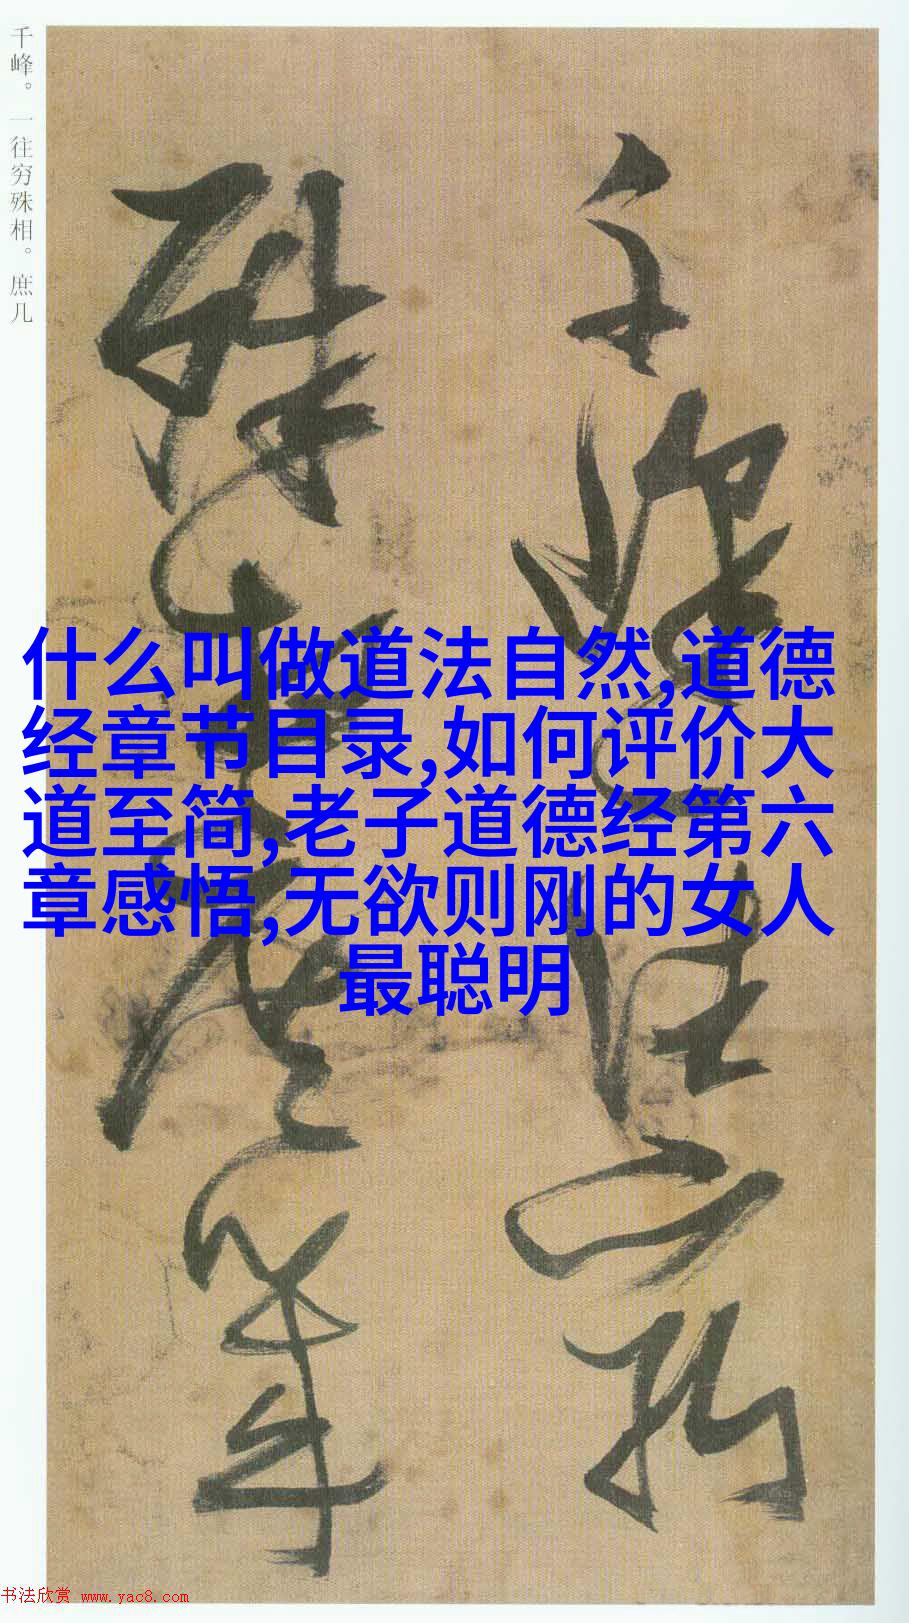 千峰。一往穷殊相。庶几
什么叫做道法自然,道德
经章节目录,如何评价大
道至简,老子道德经第六
章感悟,无欲则刚的女人
最聪明
千峰一往穷
殊相庶几
书法欣赏 www.yac8.com